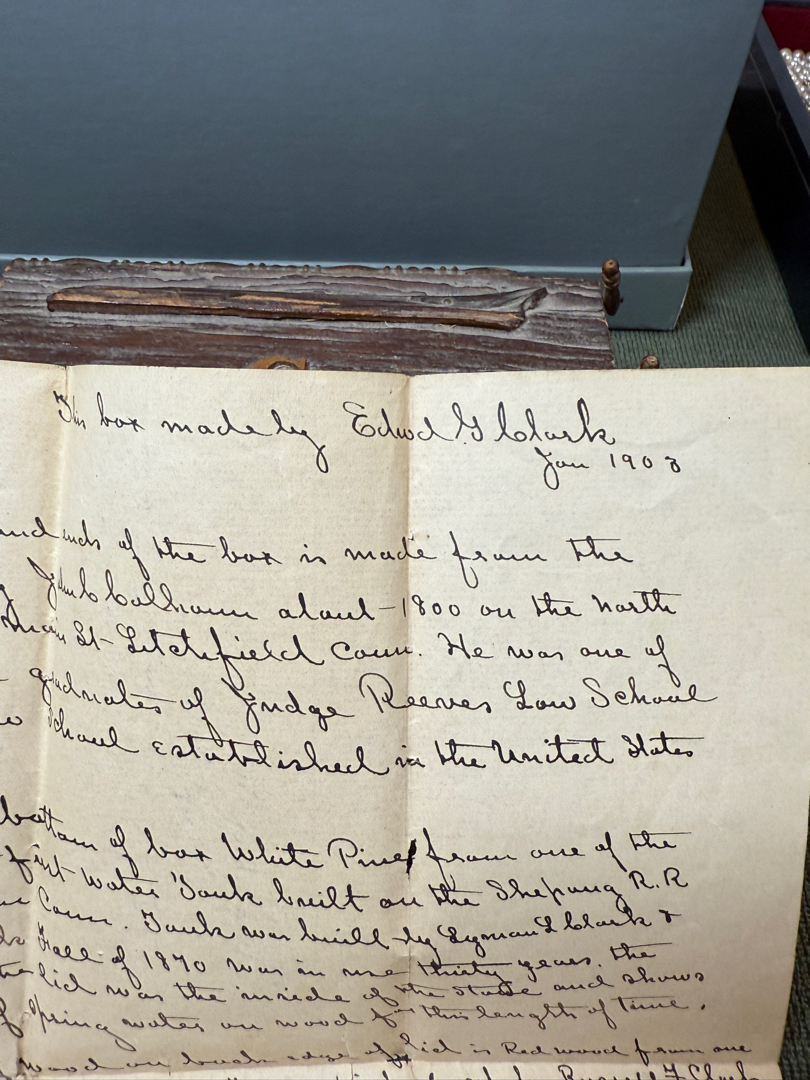 This box made by Edwd G Clark
Jan 1903
and ends of the box is made from the
John C Calhoun about 1800 on the north
main St Litchfield Conn. He was one of
graduates of Judge Reeves Law School
School established in the United States
bottom of box White Pine from one of the
first water Tank built on the Shepaug R.R
Conn. Tank was built by Lyman L Clark &
Fall of 1870 was in use thirty years. the
lid was the inside of the stave and shows
of Spring water on wood for this length of time.
wood on back edge of lid is Red wood from one
Russell L Clark